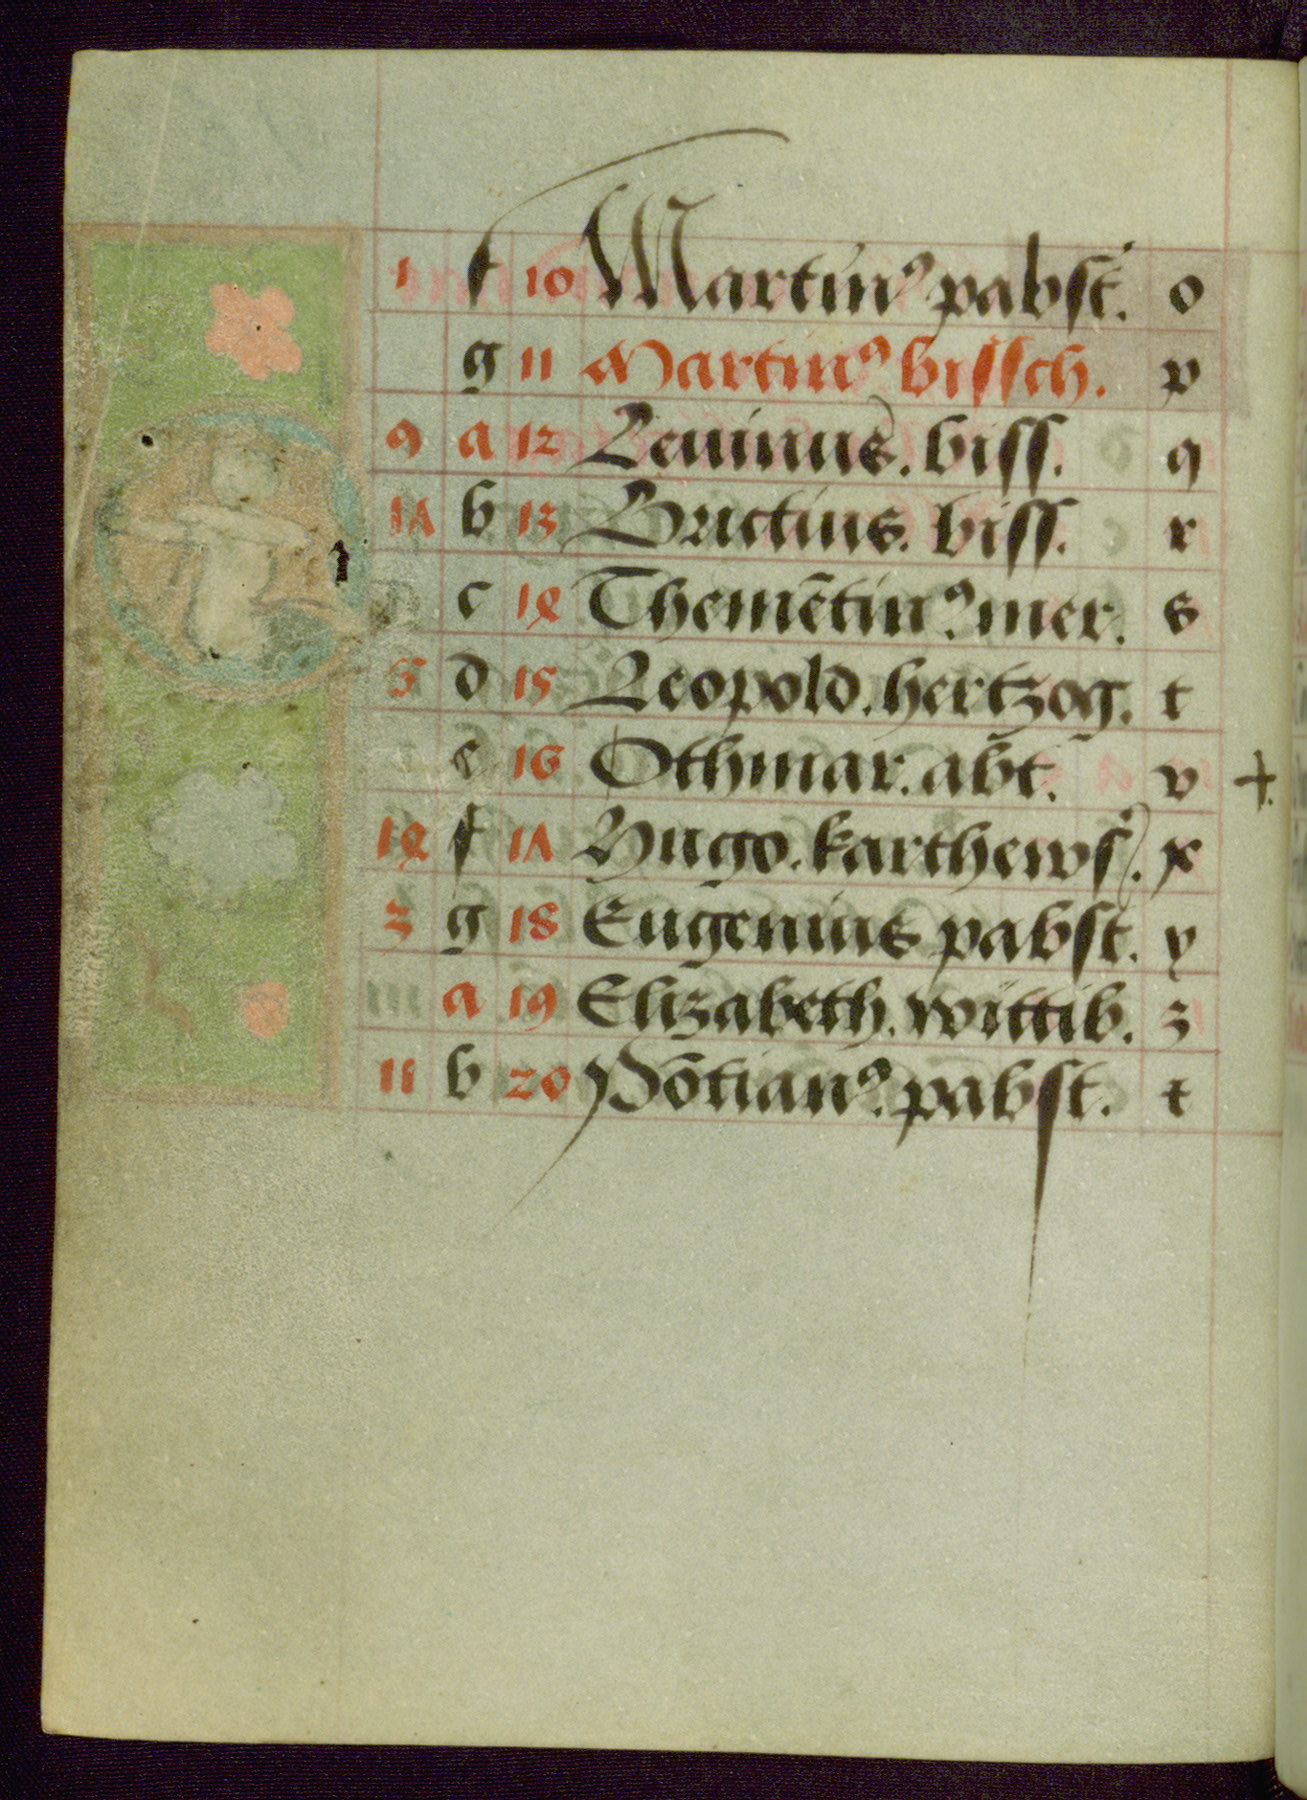 1 f 10 Martin⁹ pabst. o
g 11 Martin⁹ bissch. p
9 a 12 Leuinus. biss. q
17 b 13 Brictius. biss. r
c 14 Themētin⁹. mer. s
5 d 15 Leopold. hertzog. t
e 16 Othmar. abt. v +
14 f 17 Hugo. karthews. x
3 g 18 Eugenius pabst. y
a 19 Elizabeth. wittib. z
11 b 20 Pōtian⁹. pabst. t